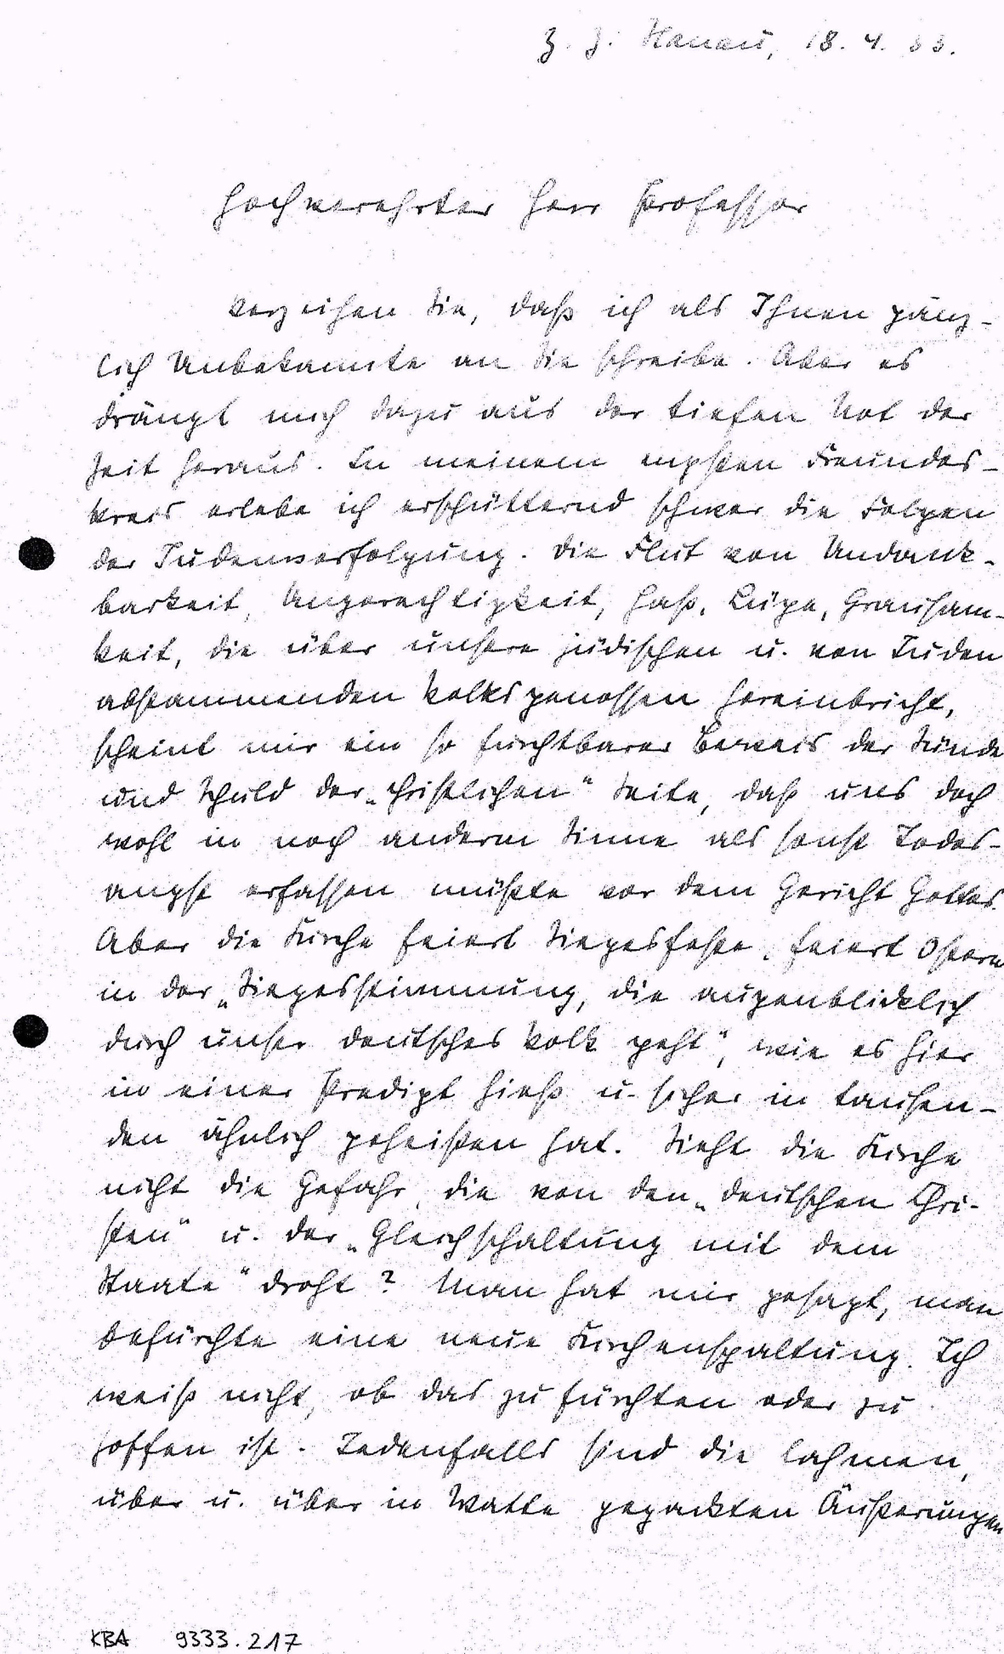 z. Z. Hanau, 18. 4. 33.
Hochverehrter Herr Professor
Verzeihen Sie, daß ich als Ihnen gänz-
lich Unbekannte an Sie schreibe. Aber es
drängt mich dazu aus der tiefen Not der
Zeit heraus. In meinem engsten Freundes-
kreis erlebe ich erschütternd schwer die Folgen
der Judenverfolgung. Die Flut von Undank-
barkeit, Ungerechtigkeit, Haß, Lüge, Grausam-
keit, die über unsere jüdischen u. von Juden
abstammenden Volksgenossen hereinbricht,
scheint mir ein so furchtbarer Beweis der Sünde
und Schuld der „christlichen“ Seite, daß uns doch
wohl in noch anderm Sinne als sonst Todes-
angst erfassen müßte vor dem Gericht Gottes.
Aber die Kirche feiert Siegesfeste, feiert Ostern
in der „Siegesstimmung, die augenblicklich
durch unser deutsches Volk geht“, wie es hier
in einer Predigt hieß u. sicher in tausen-
den ähnlich geheißen hat. Sieht die Kirche
nicht die Gefahr, die von den „deutschen Chri-
sten“ u. der „Gleichschaltung mit dem
Staate“ droht? Man hat mir gesagt, man
befürchte eine neue Kirchenspaltung. Ich
weiß nicht, ob das zu fürchten oder zu
hoffen ist. Jedenfalls sind die lahmen,
über u. über in Watte gepackten Äußerungen
KBA 9333.217